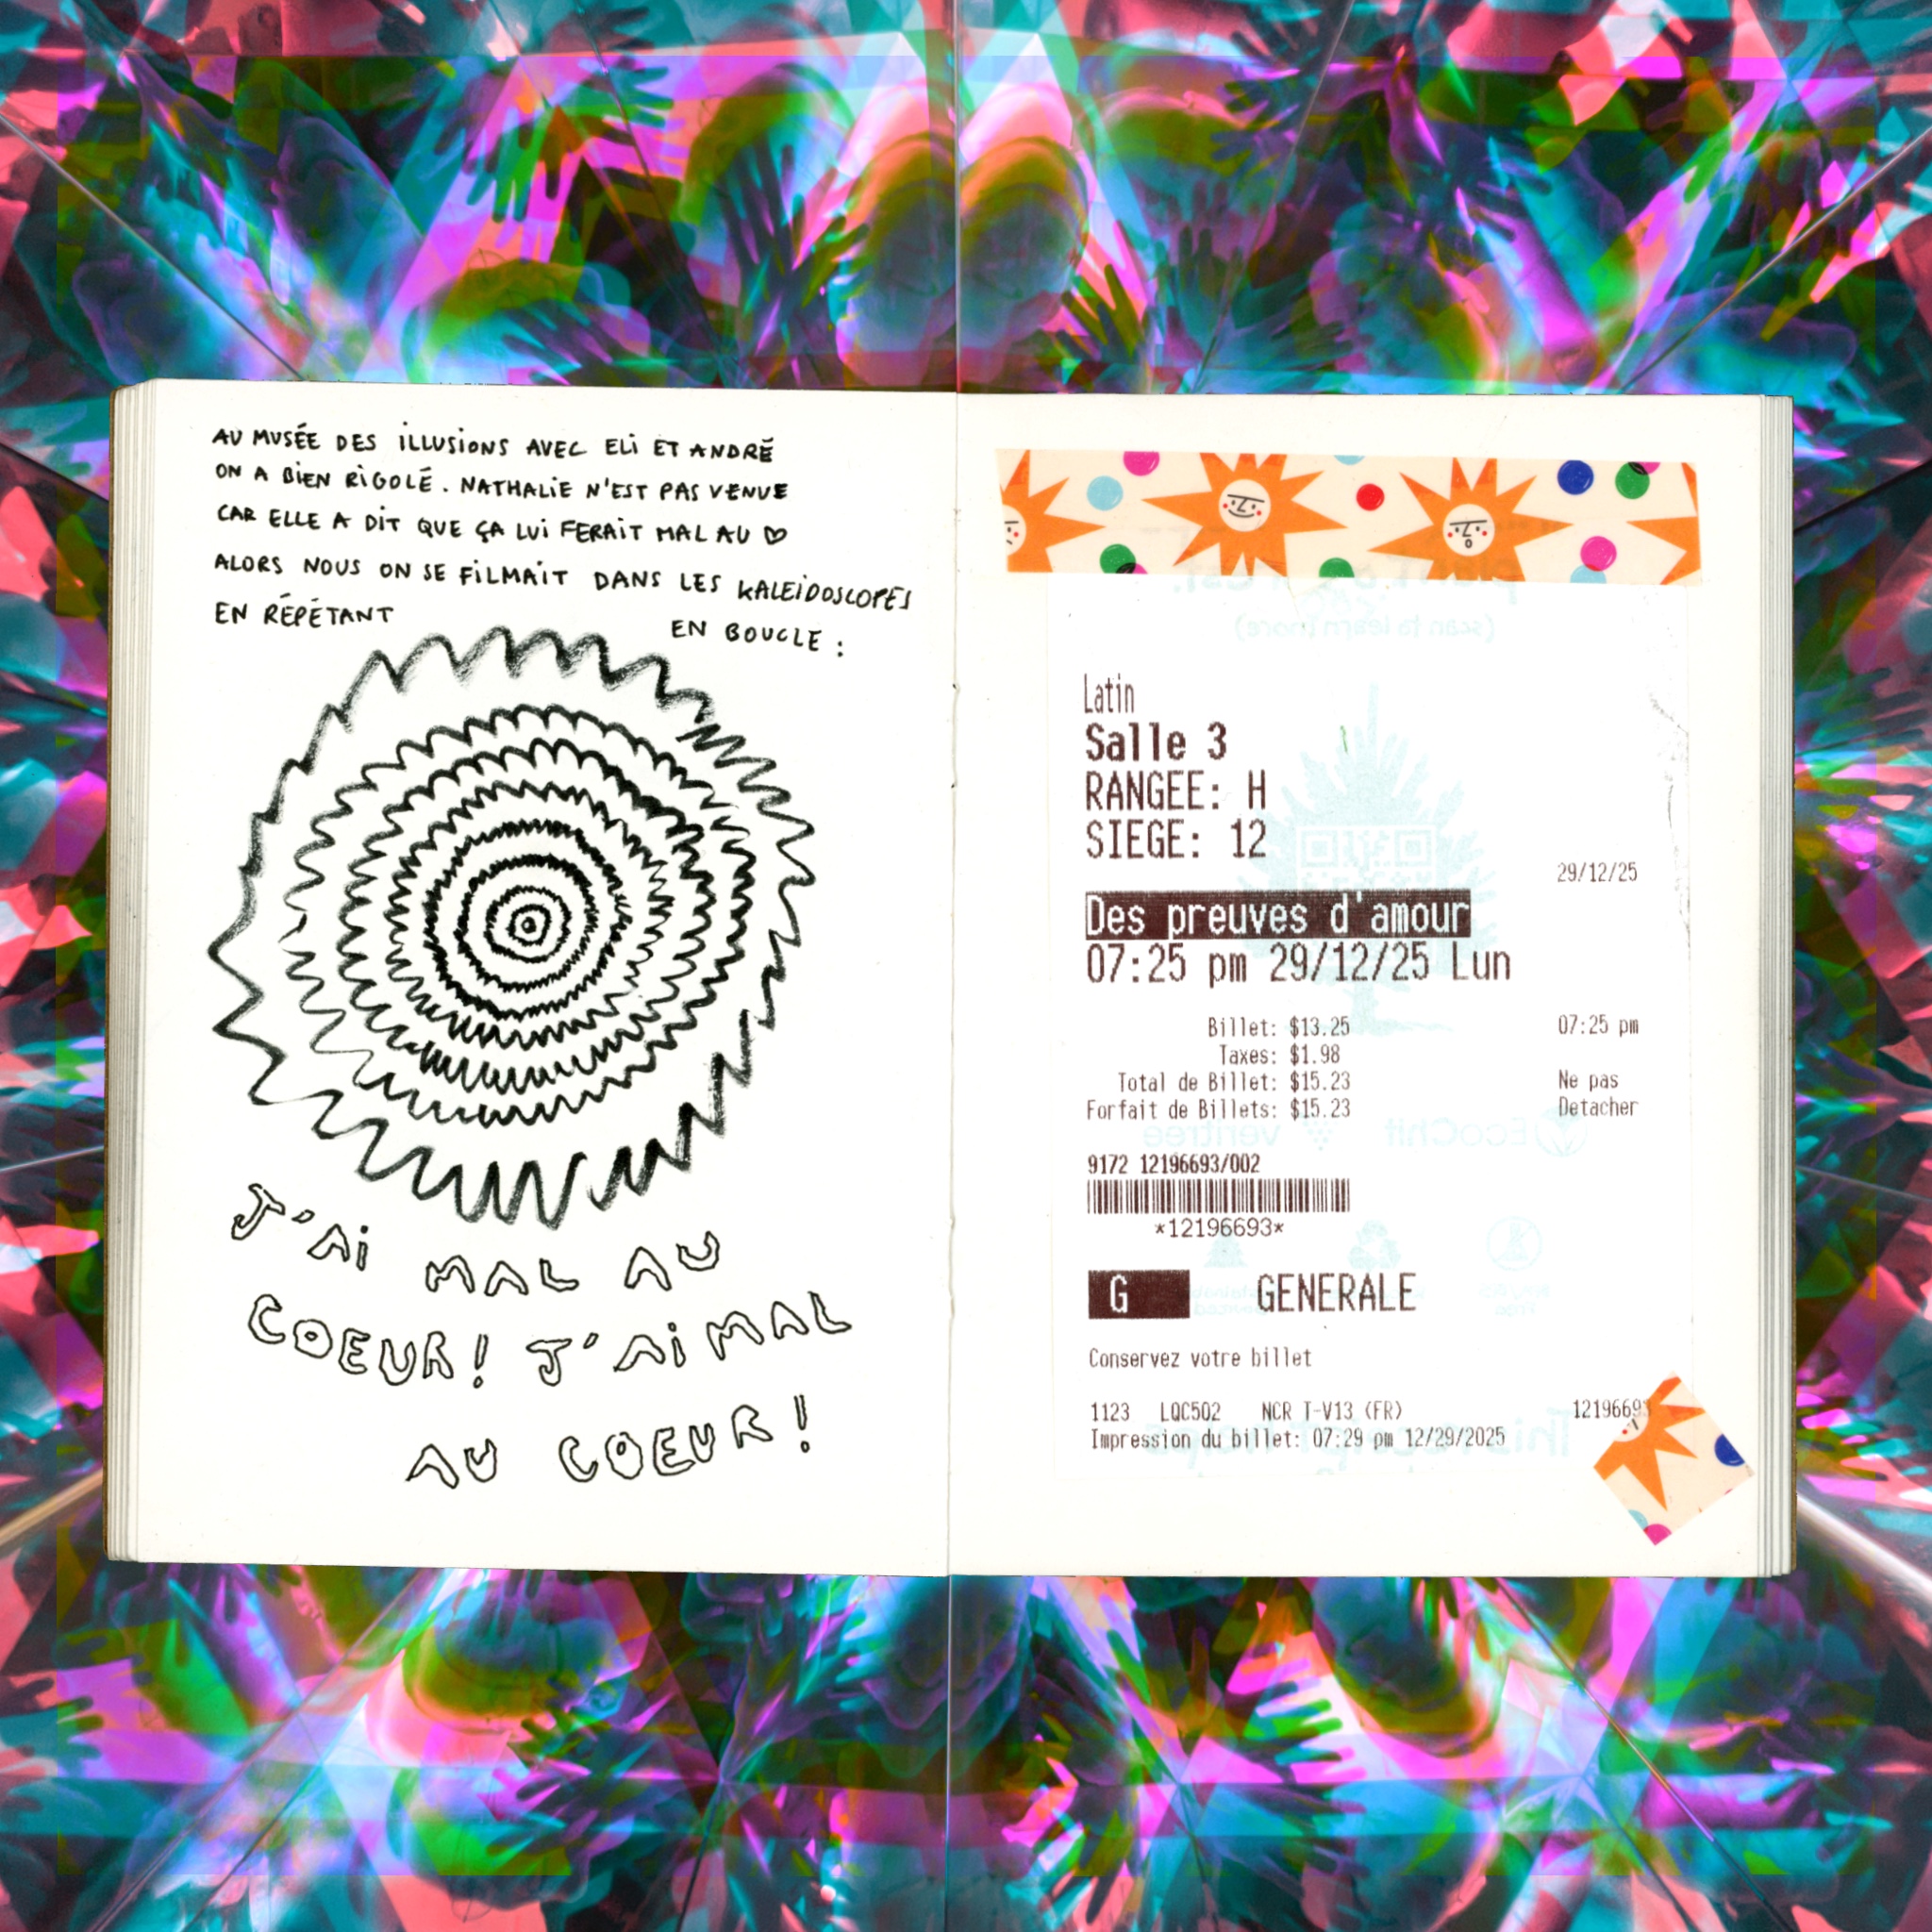 AU MUSÉE DES ILLUSIONS AVEC ELI ET ANDRÉ
ON A BIEN RIGOLÉ. NATHALIE N'EST PAS VENUE
CAR ELLE A DIT QUE ÇA LUI FERAIT MAL AU ♡
ALORS NOUS ON SE FILMAIT DANS LES KALEIDOSCOPES
EN RÉPÉTANT EN BOUCLE :
J'AI MAL AU
COEUR! J'AI MAL
AU COEUR!
(scan to learn more)
Latin
Salle 3
RANGEE: H
SIEGE: 12
29/12/25
Des preuves d'amour
07:25 pm 29/12/25 Lun
Billet: $13.25
07:25 pm
Taxes: $1.98
Total de Billet: $15.23
Ne pas
Forfait de Billets: $15.23
Detacher
EcoChit veritree
9172 12196693/002
*12196693*
G GENERALE
Conservez votre billet
1123 LQC502 NCR T-V13 (FR) 1219669
Impression du billet: 07:29 pm 12/29/2025